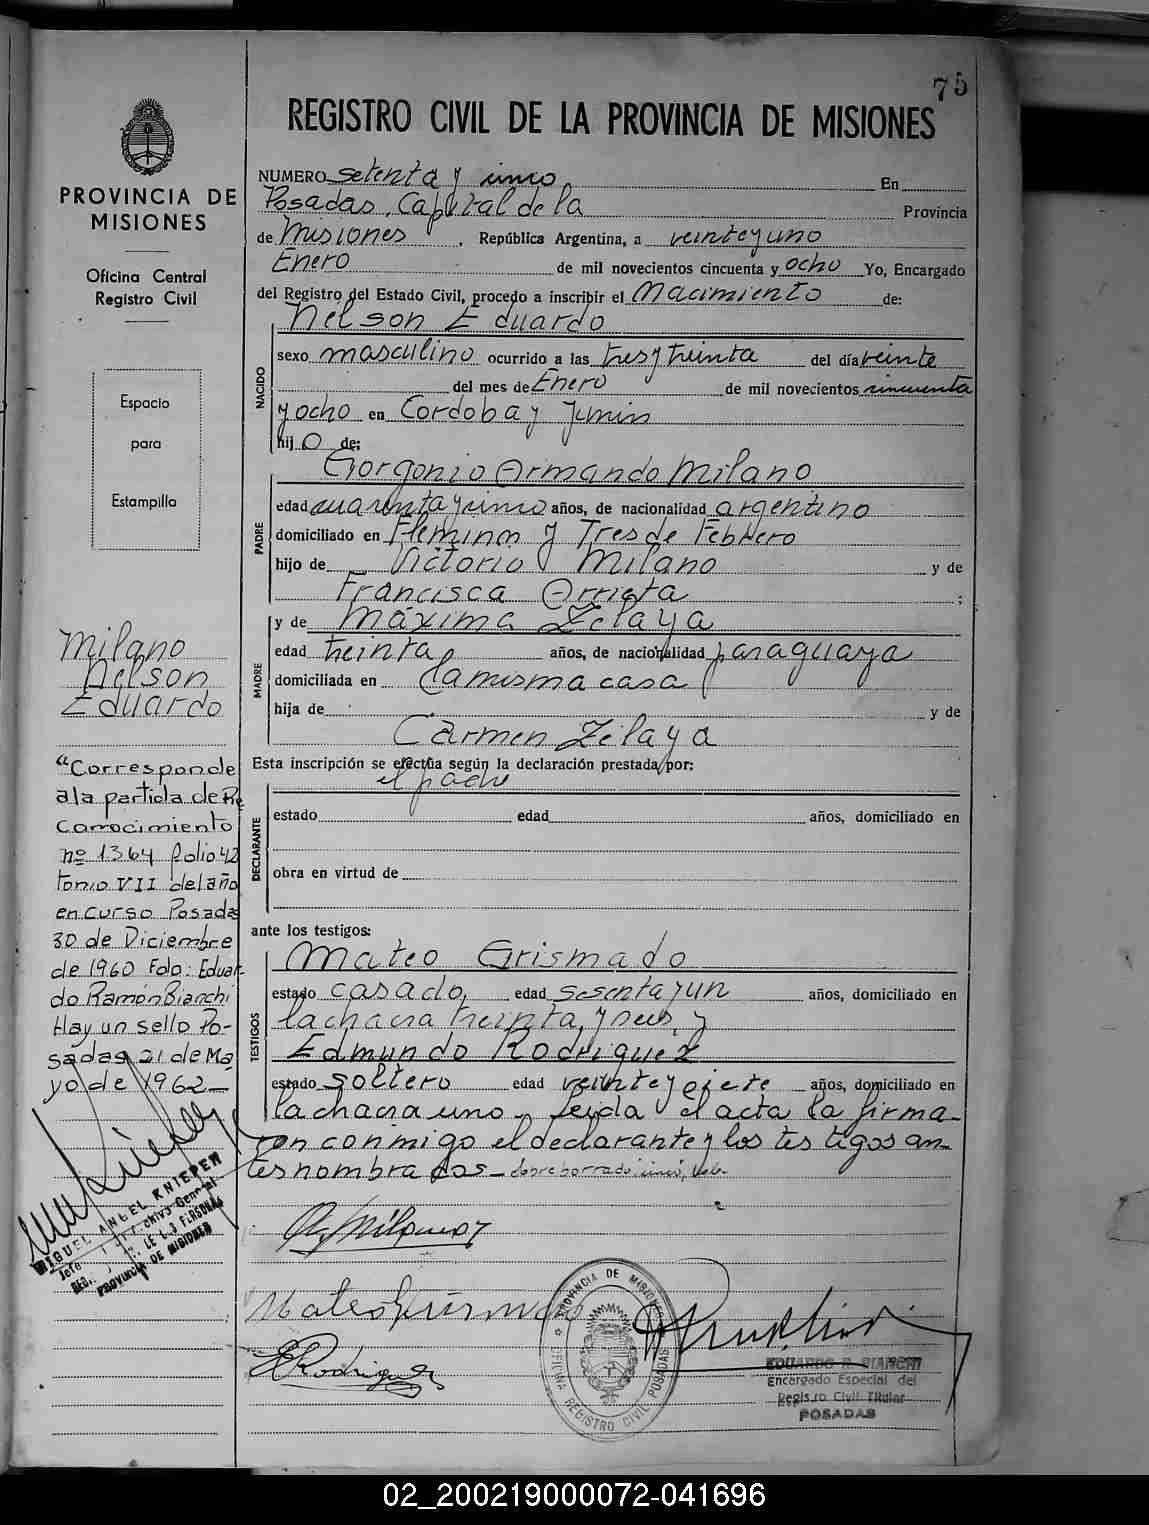 75
REGISTRO CIVIL DE LA PROVINCIA DE MISIONES
PROVINCIA DE
MISIONES
Oficina Central
Registro Civil
Espacio
para
Estampilla
Milano
Nelson
Eduardo
"Corresponde
a la partida de Re
conocimiento
nº 1364 folio 42
tomo VII del año
en curso Posadas
30 de Diciembre
de 1960 Fdo: Eduar-
do Ramón Bianchi
Hay un sello Po-
sadas 21 de Ma
yo de 1962—
MIGUEL ANGEL KNIEPER
PROVINCIA DE MISIONES
NUMERO setenta y cinco En
Posadas, Capital de la Provincia
de Misiones, República Argentina, a veinte y uno
Enero de mil novecientos cincuenta y ocho Yo, Encargado
del Registro del Estado Civil, procedo a inscribir el Nacimiento de:
Nelson Eduardo
NACIDO
sexo masculino ocurrido a las tres y treinta del día veinte
del mes de Enero de mil novecientos cincuenta
y ocho en Cordoba y Junin
hijo de:
Gorgonio Armando Milano
PADRE
edad cuarenta y cinco años, de nacionalidad argentino
domiciliado en Fleming y Tres de Febrero
hijo de Victorio Milano y de
Francisca Arrieta ;
y de Máxima Zelaya
MADRE
edad treinta años, de nacionalidad paraguaya
domiciliada en la misma casa
hija de y de
Carmen Zelaya
Esta inscripción se efectúa según la declaración prestada por:
el padre
DECLARANTE
estado edad años, domiciliado en
obra en virtud de
ante los testigos:
Mateo Grismado
TESTIGOS
estado casado, edad sesenta y un años, domiciliado en
la chacra treinta y seis, y
Edmundo Rodriguez
estado soltero edad veinte y siete años, domiciliado en
la chacra uno, leida el acta la firma-
ron conmigo el declarante y los testigos an-
tes nombrados— sobre borrado: cinco, Vale.
Mateo Grismado
E Rodriguez
PROVINCIA DE MISIONES
OFICINA REGISTRO CIVIL POSADAS
EDUARDO R. BIANCHI
Encargado Especial del
Registro Civil Titular
POSADAS
02_200219000072-041696